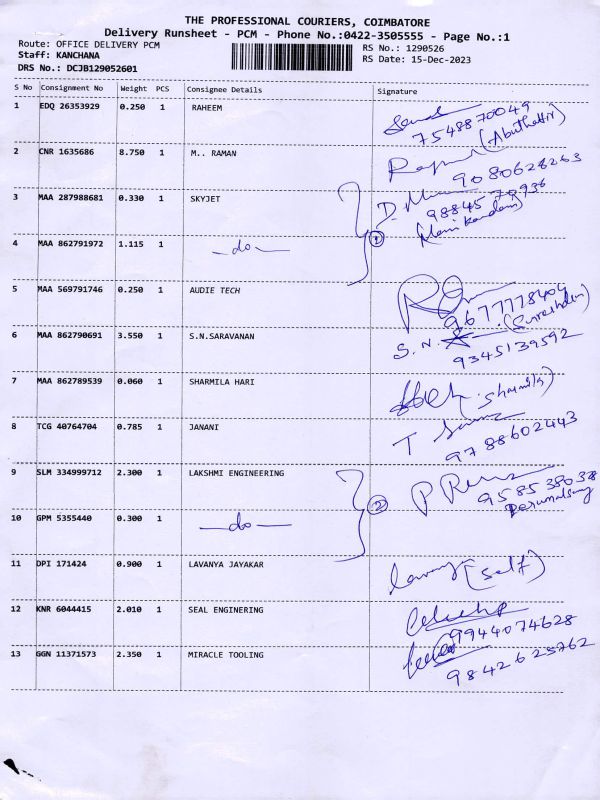 THE PROFESSIONAL COURIERS, COIMBATORE
Delivery Runsheet - PCM - Phone No.:0422-3505555 - Page No.:1
Route: OFFICE DELIVERY PCM
RS No.: 1290526
Staff: KANCHANA
RS Date: 15-Dec-2023
DRS No.: DCJB129052601
S No Consignment No Weight PCS Consignee Details Signature
1 EDQ 26353929 0.250 1 RAHEEM
7548870049
(Abuthattir)
2 CNR 1635686 8.750 1 M.. RAMAN
9080628263
3 MAA 287988681 0.330 1 SKYJET
9884579936
(Manikandam)
4 MAA 862791972 1.115 1 —do—
5 MAA 569791746 0.250 1 AUDIE TECH
9677778404
6 MAA 862790691 3.550 1 S.N.SARAVANAN
S.N.
9345139592
7 MAA 862789539 0.060 1 SHARMILA HARI
(Sharmila)
8 TCG 40764704 0.785 1 JANANI
9788602443
9 SLM 334999712 2.300 1 LAKSHMI ENGINEERING
9585538038
10 GPM 5355440 0.300 1 —do—
11 DPI 171424 0.900 1 LAVANYA JAYAKAR
Lavanya (self)
12 KNR 6044415 2.010 1 SEAL ENGINERING
9944074628
13 GGN 11371573 2.350 1 MIRACLE TOOLING
9842625762